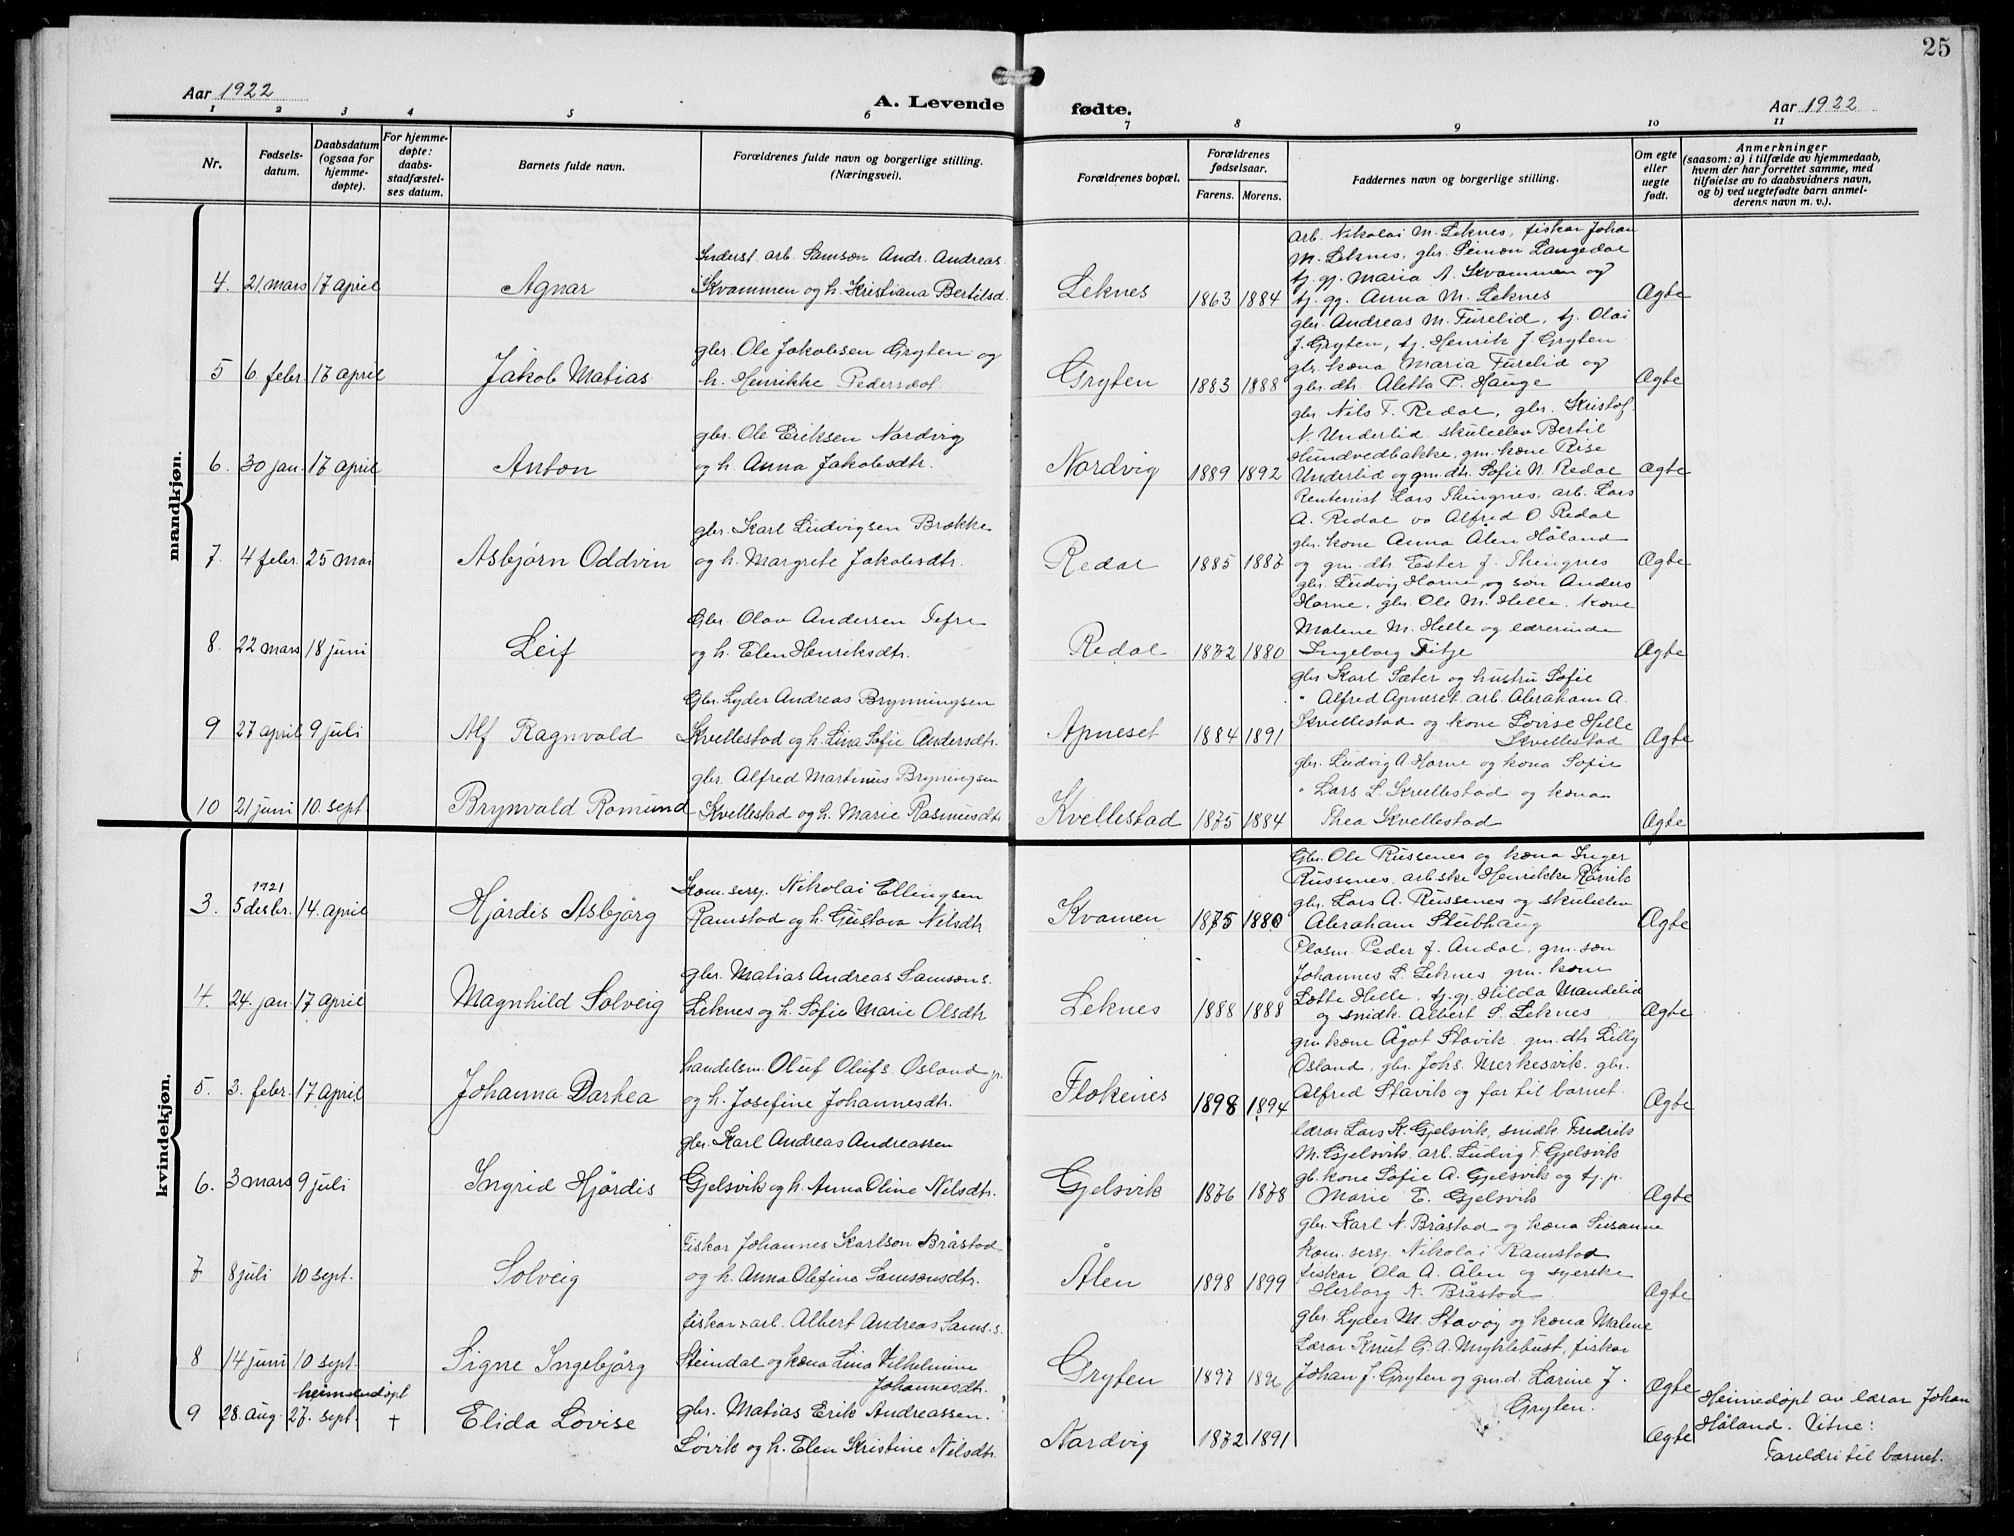 25
Aar 1922
A. Levende fødte.
Aar 1922
1 2 3 4 5 6 7 8 9 10 11
Nr.
Fødsels-
datum.
Daabsdatum
(ogsaa for
hjemme-
døpte).
For hjemme-
døpte:
daabs-
stadfæstel-
ses datum.
Barnets fulde navn.
Forældrenes fulde navn og borgerlige stilling.
(Næringsvei).
Forældrenes bopæl.
Forældrenes
fødselsaar.
Farens. Morens.
Faddernes navn og borgerlige stilling.
Om egte
eller
uegte
født.
Anmerkninger
(saasom: a) i tilfælde av hjemmedaab,
hvem der har forrettet samme, med
tilføielse av to daabsvidners navn,
og b) ved uegtefødte barn anmel-
derens navn m. v.).
mandkjøn.
4. 21 mars 17 april Agnar
Inderst. arb. Samson Andr. Andreas.
Kvammen og h. Kristiana Bertilsd.
Leknes 1863 1884
arb. Nikolai M. Leknes, fiskar Johan
M. Leknes, gbr. Simon Langedal
tj. gj. Maria A. Kvammen og
tj. gj. Anna M. Leknes
Ægte
5 6. febr. 17 april Jakob Matias
gbr. Ole Jakobsen Gryten og
h. Henrikke Pedersdot.
Gryten 1883 1888
gbr. Andreas M. Furelid, tj. Olai
J. Gryten, tj. Henrik J. Gryten
gbr. kona Maria Furelid og
gbr. dtr. Aletta P. Hauge
Ægte
6. 30 jan. 17 april Anton
gbr. Ole Eriksen Nordvig
og h. Anna Jakobsdtr.
Nordvig 1889 1892
gbr. Nils T. Redal, gbr. Kristof.
N. Underlid, skuleelev Bertil
Hundvedbakke, gm. kone Rise
Underlid og gm. dtr. Sofie N. Redal
Ægte
7. 4 febr. 25 mai Asbjørn Oddvin
gbr. Karl Ludvigsen Brække
og h. Margrete Jakobsdtr.
Redal 1885 1887
Rentenist Lars Thingnes, arb. Lars
A. Redal og Alfred O. Redal
gbr. kone Anna Ålen Håland
og gm. dtr. Ester J. Thingnes
Ægte
8. 22 mars 18 juni Leif
Gbr. Olav Andersen Tefre
og h. Elen Henriksdtr.
Redal 1872 1880
gbr. Ludvig Horne og søn Anders
Horne, gbr. Ole M. Helle, kone
Malene M. Helle og lærerinde
Ingeborg Fitje
Ægte
9 27 april 9 juli Alf Ragnvald
Gbr. Lyder Andreas Brynningsen
Kvellestad og h. Lina Sofie Andersdtr.
Apneset 1884 1891
gbr Karl Sæter og hustru Sofie
" Alfred Apneset arb. Abraham A.
Kvellestad og kone Lovise Helle
Kvellestad
Ægte
10 21 juni 10. sept. Brynvald Romund
gbr. Alfred Martinus Bryningsen
Kvellestad og h. Marie Rasmusdtr
Kvellestad 1875 1884
gbr. Ludvig A Horne og kona Sofie
" Lars L. Kvellestad og kona
Thea Kvellestad
Ægte
kvindekjøn.
1921
3. 5 desbr. 14. april Hjørdis Asbjørg
Kom. sersj. Nikolai Ellingsen
Ramstad og h. Gustava Nilsdtr.
Kvamen 1875 1880
Gbr. Ole Russenes og kona Inger
Russenes, arbske Henrikke Rørvik
gbr. Lars A. Russenes og skuleelev
Abraham Stubhaug
Ægte
4. 24. jan. 17 april Magnhild Solveig
gbr. Matias Andreas Samsons.
Leknes og h. Sofie Marie Olsdtr
Leknes 1888 1888
Plasm. Peder J. Andal, gm. søn
Johannes S. Leknes, gm. kone
Lotte Helle, tj. gj. Hilda Mandelid
og snidk. Albert S. Leknes
Ægte
5. 3. febr. 17 april Johanna Dorthea
handelsm. Oluf Olufs. Osland
og h. Josefine Johannesdtr.
Flokenes 1898 1894
gm kone Ågot Stavik, gm. dtr. Lilly
Osland, gbr. Johs. Merkesvik, gbr.
Alfred Stavik og far til barnet.
Ægte
6. 3 mars 9 juli Ingrid Hjørdis
gbr. Karl Andreas Andreassen
Gjelsvik og h. Anna Oline Nilsdtr.
Gjelsvik 1876 1878
lærar Lars K. Gjelsvik, snidk. Fredrik
M. Gjelsvik, arb. Ludvig T. Gjelsvik
gb. kone Sofie A. Gjelsvik og tj. p.
Marie E. Gjelsvik
Ægte
7 8 juli 10 sept. Solveig
Fiskar Johannes Karlson Bråstad
og h. Anna Olefine Samsonsdtr.
Ålen 1898 1899
gbr. Karl N. Bråstad og kona Susanna
kom. sersj. Nikolai Ramstad
fiskar Ola A. Ålen og syerske
Herborg N. Bråstad
Ægte
8 14 juni 10 sept. Signe Ingebjørg
fiskar + arb. Albert Andreas Sams. s.
Steindal og kona Lina Vilhelmine
Johannesdtr.
Gryten 1897 1896
gbr. Lyder M. Stavøy og kona Malene
Lærar Knut G. A. Myklebust, fiskar
Johan J. Gryten og gm. d. Larine J.
Gryten.
Ægte
heimedøpt
9 28. aug. 27. sept. + Elida Lovise
gbr. Matias Erik Andreassen.
Løvik og h. Elen Kristine Nilsdtr.
Nordvig 1872 1891
Ægte
Heimedøpt av lærar Johan
Håland. Vitne:
Foreldri til barnet.